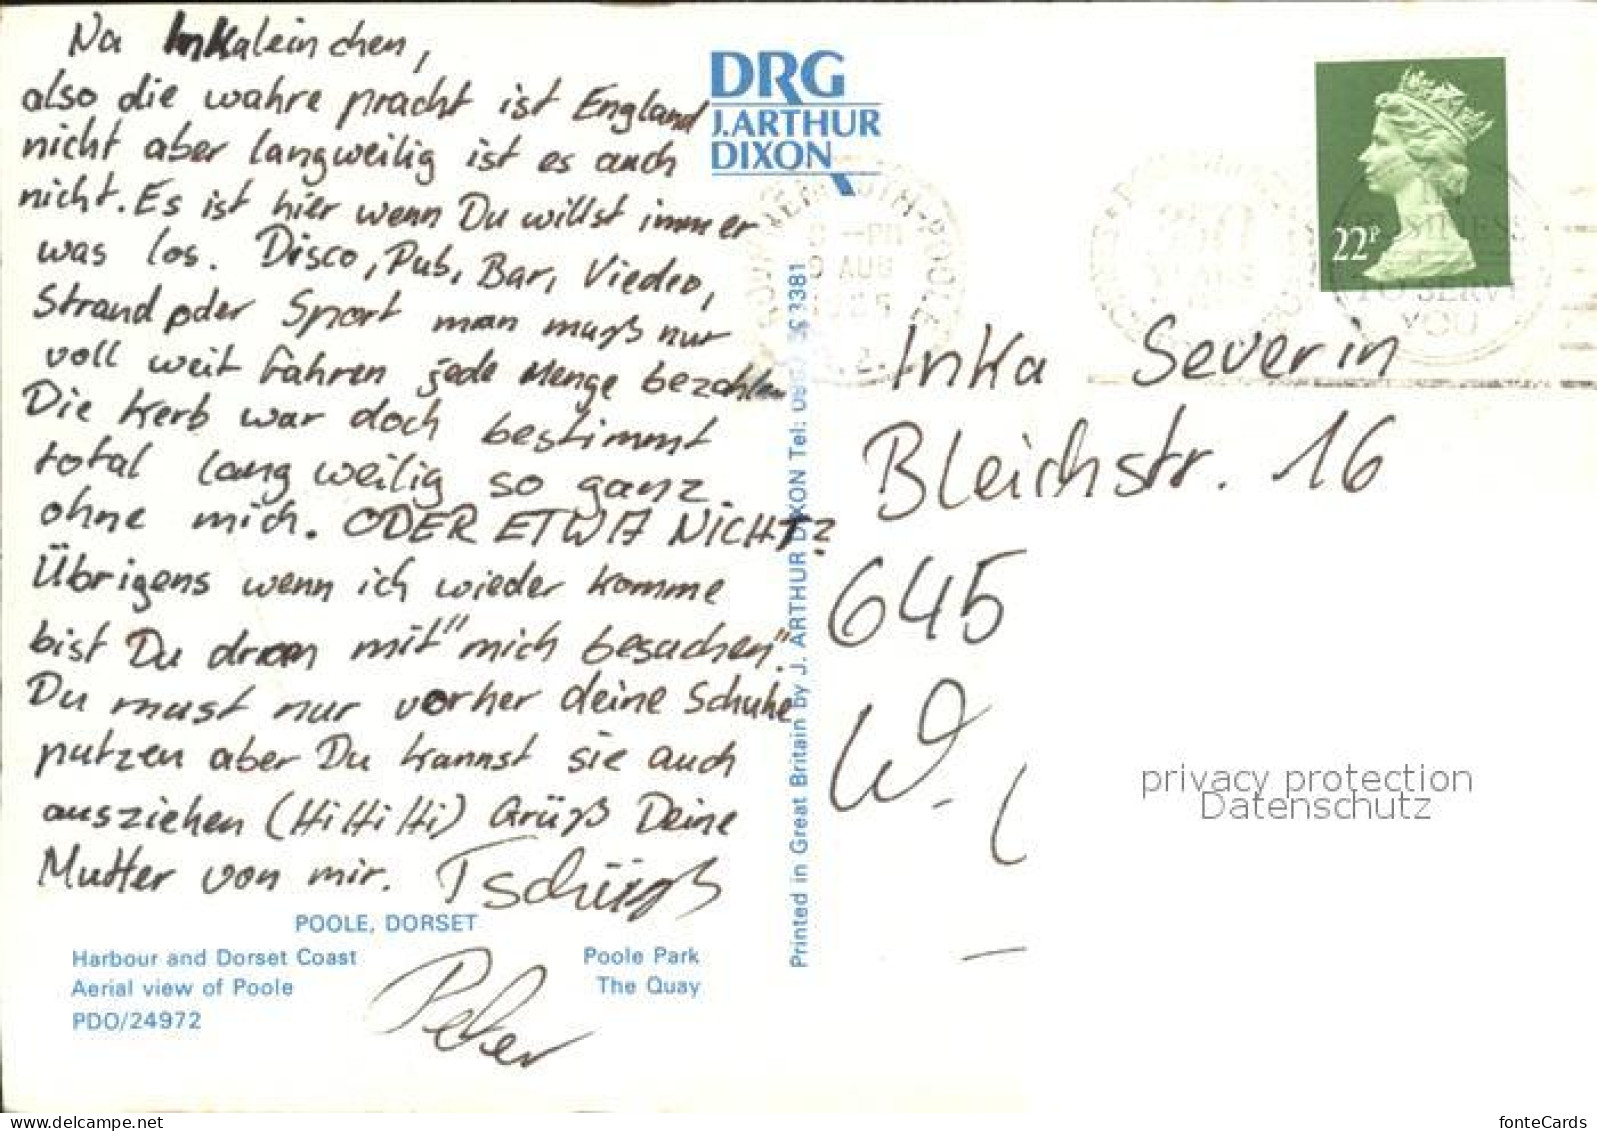 Na Inkaleinchen,
also die wahre pracht ist England
nicht aber langweilig ist es auch
nicht. Es ist hier wenn Du willst immer
was los. Disco, Pub, Bar, Viedeo,
Strand oder Sport man muß nur
voll weit fahren jede Menge bezahlen
Die Kerb war doch bestimmt
total langweilig so ganz
ohne mich. ODER ETWA NICHT?
Übrigens wenn ich wieder komme
bist Du dran mit "mich besuchen".
Du must nur vorher deine Schuhe
putzen aber Du kannst sie auch
ausziehen (Hi Hi Hi) Grüß Deine
Mutter von mir. Tschüß
Peter
POOLE, DORSET
Harbour and Dorset Coast
Poole Park
Aerial view of Poole
The Quay
PDO/24972
DRG
J.ARTHUR
DIXON
Printed in Great Britain by J. ARTHUR DIXON Tel:
3381
AUG
22P
TO SERVE
YOU
Inka Severin
Bleichstr. 16
645
W.
privacy protection
Datenschutz
fonteCards